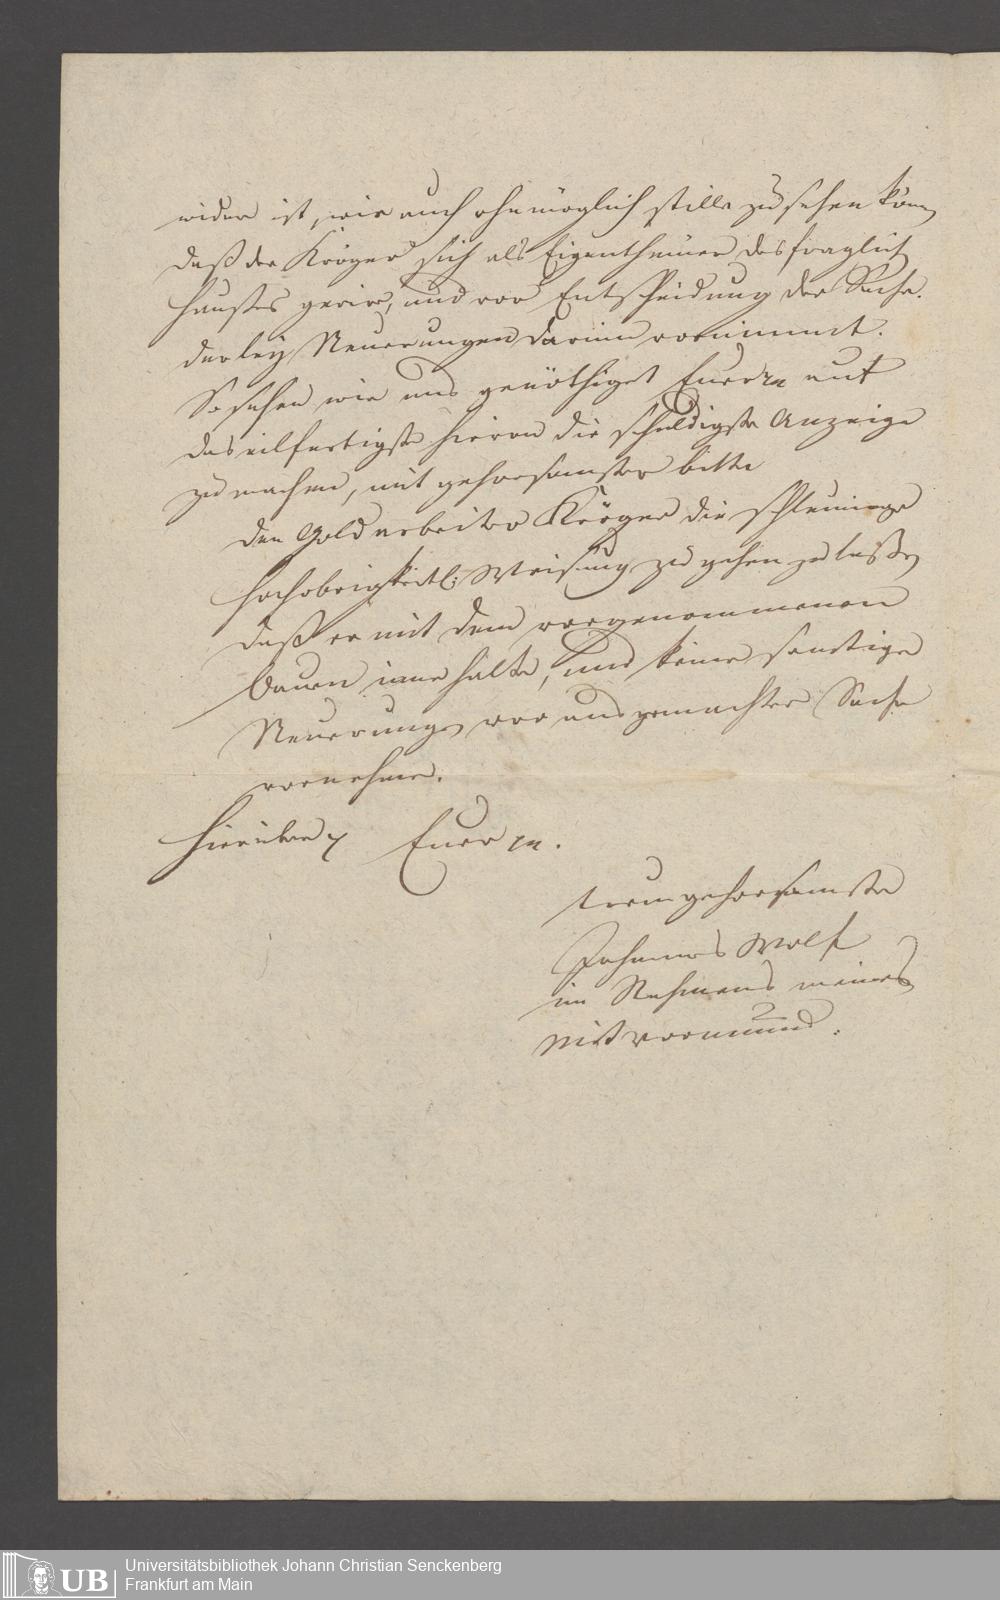 wider ist, wir auch ohnmöglich stille zu sehen könn
daß der Kröger sich als Eigenthümer des fraglich
Haußes gerire, und vor Entscheidung der Sache
derley Neuerungen darinn vornimmt.
So sehen wir uns genöthiget Euer ꝛc auf
das eilfertigste hievon die schuldigste Anzeige
zu machen, mit gehorsamster bitte
den Goldarbeiter Kröger die schleunige
hochobrigkeitl: Weisung zu gehen zu laßen
daß er mit dem vorgenommenen
Bauen inne halte, und keine sonstige
Neuerungen vor ausgemachter Sache
vornehme.
Hierüber Euer ꝛc.
treugehorsamste
Johannes Wolf
im Nahmens meines
Mitvormund.
UB
Universitätsbibliothek Johann Christian Senckenberg
Frankfurt am Main